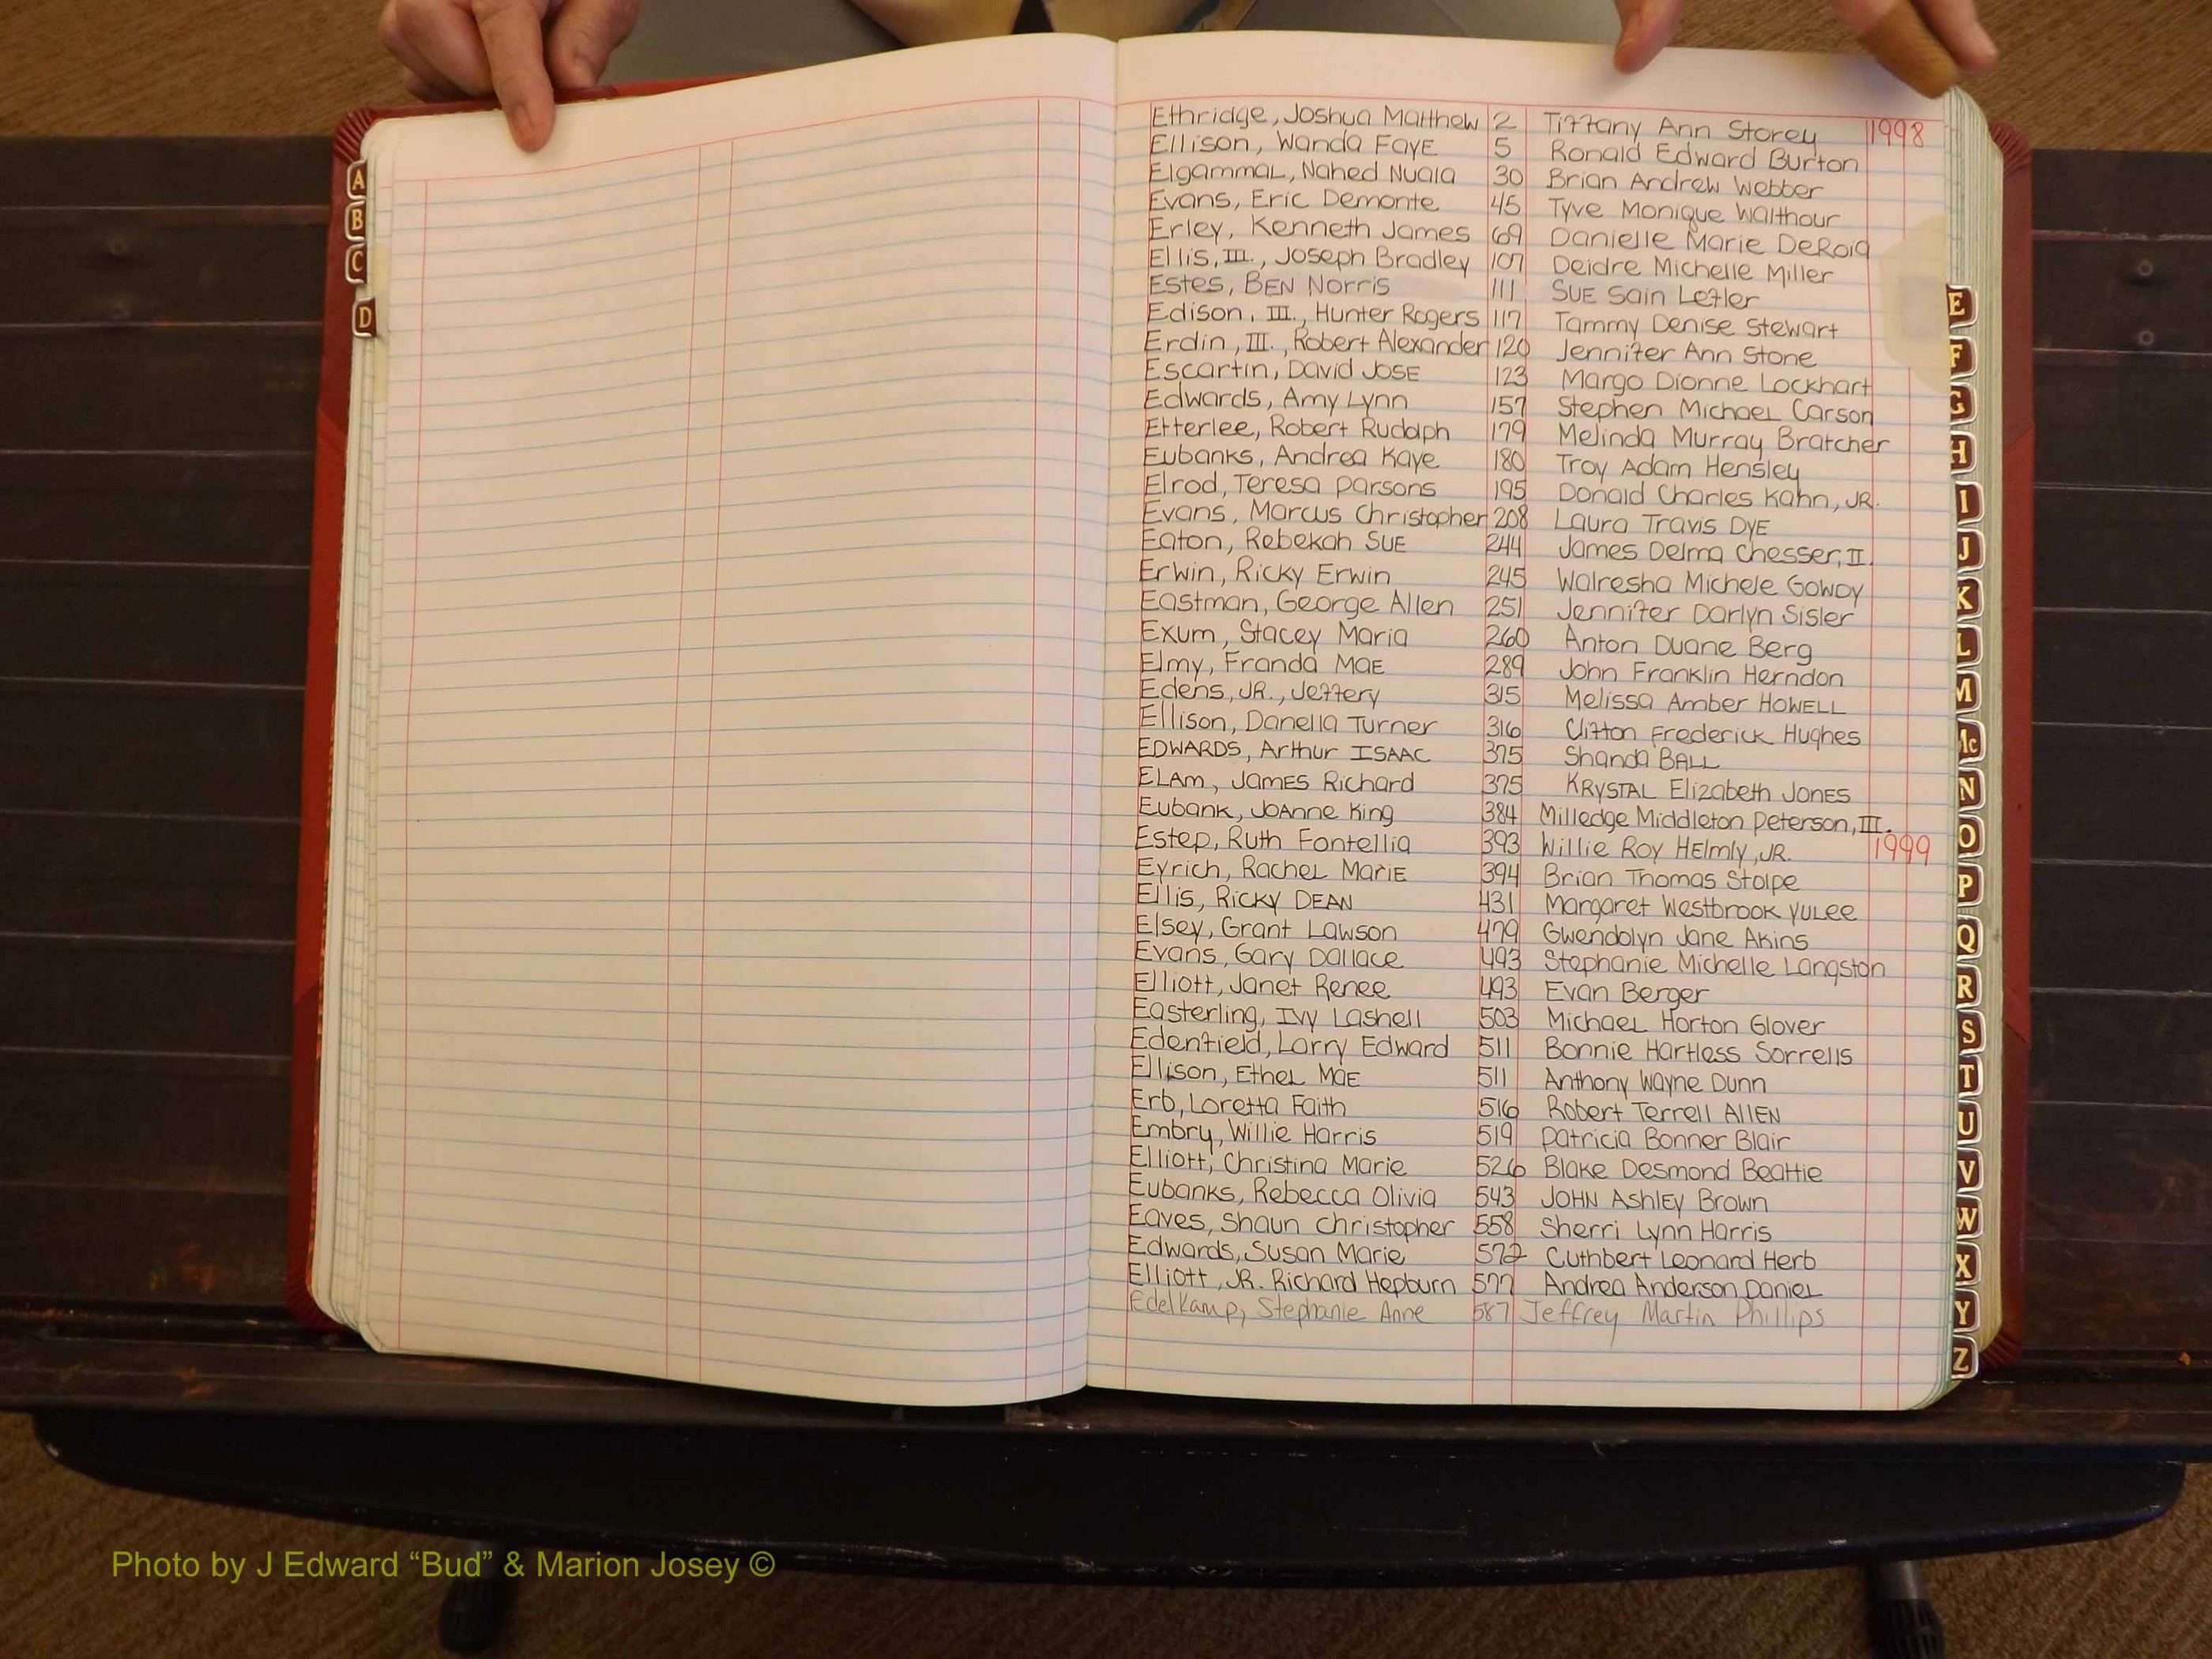 A
B
C
D
Ethridge, Joshua Matthew 2 Tiffany Ann Storey 1998
Ellison, Wanda FayE 5 Ronald Edward Burton
ElgammaL, Nahed Nuala 30 Brian Andrew Webber
Evans, Eric Demonte 45 Tyve Monique Walthour
Erley, Kenneth James 69 Danielle Marie DeRoia
Ellis, III., Joseph Bradley 107 Deidre Michelle Miller
Estes, BEN Norris 111 SUE Sain Lefler
Edison, III., Hunter Rogers 117 Tammy Denise Stewart
Erdin, III., Robert Alexander 120 Jennifer Ann Stone
Escartin, David JOSE 123 Margo Dionne Lockhart
Edwards, Amy Lynn 157 Stephen MichaeL Carson
Etterlee, Robert Rudolph 179 Melinda Murray Bratcher
Eubanks, Andrea Kaye 180 Troy Adam Hensley
Elrod, Teresa Parsons 195 Donald Charles Kahn, JR.
Evans, Marcus Christopher 208 Laura Travis DYE
Eaton, Rebekah SUE 244 James Delma Chesser, II.
Erwin, Ricky Erwin 245 Walresha Michele Gowdy
Eastman, George Allen 251 Jennifer Darlyn Sisler
Exum, Stacey Maria 260 Anton Duane Berg
Elmy, Franda MAE 289 John Franklin Herndon
Edens, JR., Jeffery 315 Melissa Amber HOWELL
Ellison, Danella Turner 316 Clifton Frederick Hughes
EDWARDS, Arthur ISAAC 375 Shanda BALL
ELAm, JAMES Richard 375 KRYSTAL Elizabeth JONES
Eubank, JoAnne King 384 Milledge Middleton Peterson, III.
Estep, Ruth Fontellia 393 Willie Roy HElmly, JR. 1999
Eyrich, RacheL MariE 394 Brian Thomas Stolpe
Ellis, RICKY DEAN 431 Margaret Westbrook YULee
Elsey, Grant Lawson 479 Gwendolyn Jane Akins
Evans, Gary Dallace 493 Stephanie Michelle Langston
Elliott, Janet Renee 493 Evan Berger
Easterling, Ivy Lashell 503 MichaeL Horton Glover
Edenfield, Larry Edward 511 Bonnie Hartless Sorrells
Ellison, EtheL MaE 511 Anthony Wayne Dunn
Erb, Loretta Faith 516 Robert Terrell AllEN
Embry, Willie Harris 519 Patricia Bonner Blair
Elliott, Christina Marie 526 Blake Desmond Beattie
Eubanks, Rebecca Olivia 543 JOHN AshlEy Brown
Eaves, Shaun Christopher 558 Sherri Lynn Harris
Edwards, Susan Marie 572 Cuthbert Leonard Herb
Elliott, JR. Richard Hepburn 577 Andrea Anderson DanieL
Edelkamp, Stephanie Anne 587 Jeffrey Martin Phillips
E
F
G
H
I
J
K
L
M
Mc
N
O
P
Q
R
S
T
U
V
W
X
Y
Z
Photo by J Edward “Bud” & Marion Josey ©